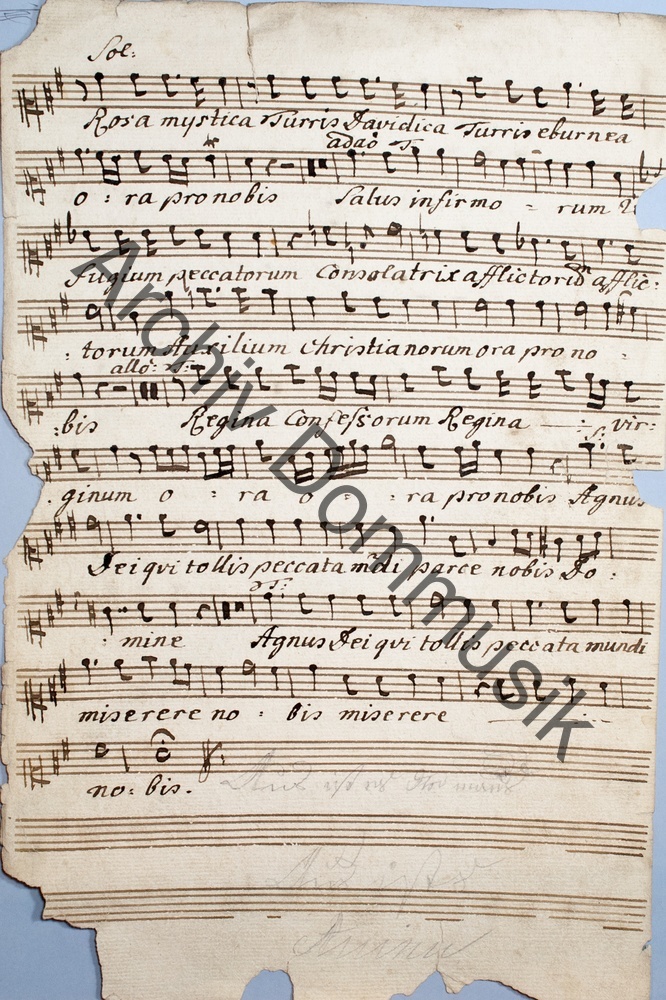 Sol:
Rosa mystica Turris Davidica Turris eburnea
adaō T.
o : ra pro nobis Salus infirmo = rum
fugium peccatorum Consolatrix afflictorū afflic:
: torum Auxilium Christianorum ora pro no -
allō: T:
:bis Regina Confessorum Regina — : vir:
ginum o : ra o : : ra pro nobis Agnus
Dei qui tollis peccata mūdi parce nobis Do :
: mine Agnus Dei qui tollis peccata mundi
miserere no : bis miserere
no: bis.
Archiv Dommusik